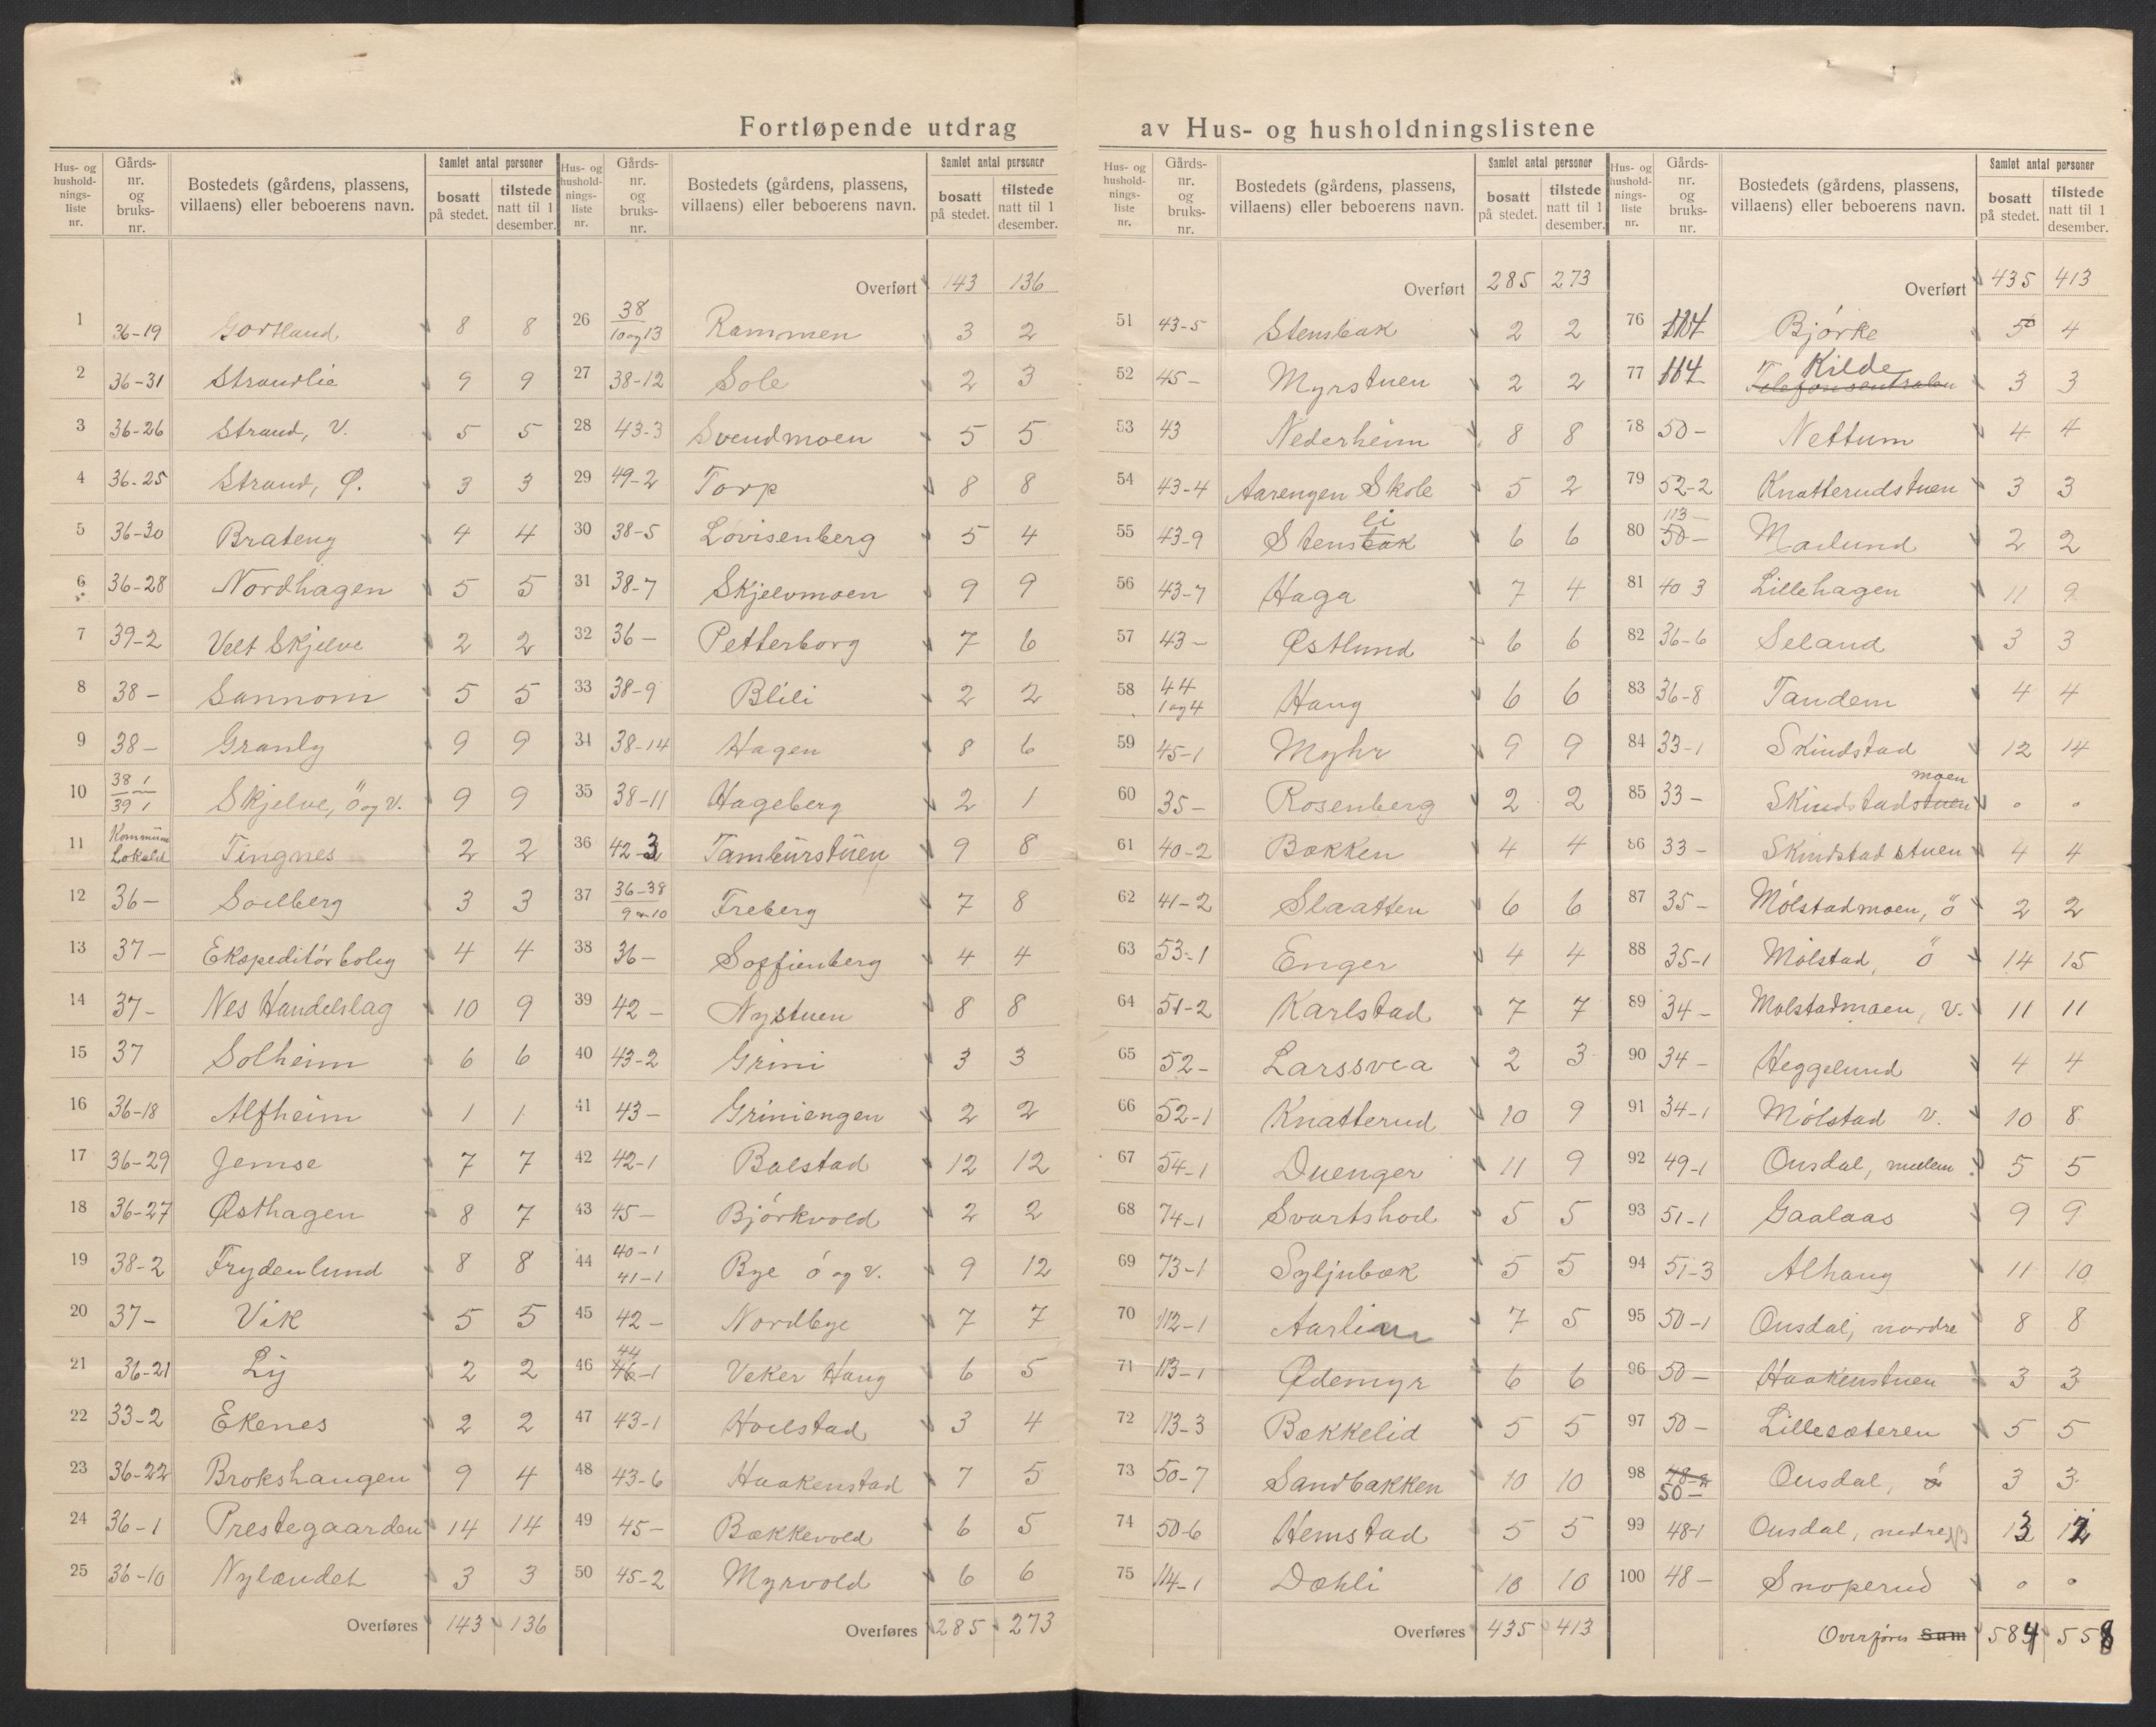 Fortløpende utdrag av Hus- og husholdningslistene
Hus- og husholdnings-liste nr. Gårds-nr. og bruks-nr. Bostedets (gårdens, plassens, villaens) eller beboerens navn. Samlet antal personer bosatt på stedet. tilstede natt til 1 desember.
1 36-19 8 8
2 36-31 Strandlie 9 9
3 36-26 Strand, V. 5 5
4 36-25 Strand, Ø. 3 3
5 36-30 Brateng 4 4
6 36-28 Nordhagen 5 5
7 39-2 Velt Skjelve 2 2
8 38- Sannom 5 5
9 38- Granly 9 9
10 38 1 39 1 Skjelve, ö og v. 9 9
11 Kommune Lokalet Tingnes 2 2
12 36- Solberg 3 3
13 37- Ekspeditörbolig 4 4
14 37- Nes Handelslag 10 9
15 37 Solheim 6 6
16 36-18 Alfheim 1 1
17 36-29 Jemse 7 7
18 36-27 Østhagen 8 7
19 38-2 Frydenlund 8 8
20 37- Vik 5 5
21 36-21 Ly 2 2
22 33-2 Ekenes 2 2
23 36-22 Brokshaugen 9 4
24 36-1 Prestegaarden 14 14
25 36-10 Nylændet 3 3
Overføres 143 136
Hus- og husholdnings-liste nr. Gårds-nr. og bruks-nr. Bostedets (gårdens, plassens, villaens) eller beboerens navn. Samlet antal personer bosatt på stedet. tilstede natt til 1 desember.
Overført 143 136
26 38 10 og 13 Rammen 3 2
27 38-12 Sole 2 3
28 43-3 Svendmoen 5 5
29 49-2 Torp 8 8
30 38-5 Lovisenberg 5 4
31 38-7 Skjelvmoen 9 9
32 36- Petterborg 7 6
33 38-9 Blili 2 2
34 38-14 Hagen 8 6
35 38-11 Hageberg 2 1
36 42-3 Tamburstuen 9 8
37 36-38 9 10 Freberg 7 8
38 36- Soffienberg 4 4
39 42- Nystuen 8 8
40 43-2 Grini 3 3
41 43- Griniengen 2 2
42 42-1 Balstad 12 12
43 45- Björkvold 2 2
44 40-1 41-1 Bye ö og v. 9 12
45 42- Nordbye 7 7
46 44 46-1 Veker Haug 6 5
47 43-1 Hoelstad 3 4
48 43-6 Haakenstad 7 5
49 45- Bækkevold 6 5
50 45-2 Myrvold 6 6
Overføres 285 273
Hus- og husholdnings-liste nr. Gårds-nr. og bruks-nr. Bostedets (gårdens, plassens, villaens) eller beboerens navn. Samlet antal personer bosatt på stedet. tilstede natt til 1 desember.
Overført 285 273
51 43-5 Stensbak 2 2
52 45- Myrstuen 2 2
53 43 Nederheim 8 8
54 43-4 Aarengen Skole 5 2
55 43-9 Stensbak li 6 6
56 43-7 Haga 7 4
57 43- Østlund 6 6
58 44 1 og 4 Haug 6 6
59 45-1 Myhr 9 9
60 35- Rosenberg 2 2
61 40-2 Bakken 4 4
62 41-2 Slaatten 6 6
63 53-1 Enger 4 4
64 51-2 Karlstad 7 7
65 52- Larssvea 2 3
66 52-1 Knatterud 10 9
67 54-1 Duenger 11 9
68 74-1 Svartshod 5 5
69 73-1 Syljubæk 5 5
70 112-1 Aarlien 7 5
71 113-1 Ødemyr 6 6
72 113-3 Bækkelid 5 5
73 50-7 Sandbakken 10 10
74 50-6 Hemstad 5 5
75 114-1 Dæhli 10 10
Overføres 435 413
Hus- og husholdnings-liste nr. Gårds-nr. og bruks-nr. Bostedets (gårdens, plassens, villaens) eller beboerens navn. Samlet antal personer bosatt på stedet. tilstede natt til 1 desember.
Overført 435 413
76 114 Björke 5 4
77 114- Telefonsentralen Kilde 3 3
78 50- Nettum 4 4
79 52-2 Knatterudstuen 3 3
80 113- 50- Maelund 2 2
81 40 3 Lillehagen 11 9
82 36-6 Seland 3 3
83 36-8 Tandem 4 4
84 33-1 Skindstad 12 14
85 33- Skindstadstuen moen 0 0
86 33- Skindstad stuen 4 4
87 35- Mölstadmoen, ö 2 2
88 35-1 Mölstad, ö 14 15
89 34- Mölstadmoen, v. 11 11
90 34- Heggelund 4 4
91 34-1 Mölstad v. 10 8
92 49-1 Onsdal, mellem 5 5
93 51-1 Gaalaas 9 9
94 51-3 Alhaug 11 10
95 50-1 Onsdal, nordre 8 8
96 50- Haakenstuen 3 3
97 50- Lillesæteren 5 5
98 48-2 50- Onsdal, ö 3 3
99 48-1 Onsdal, nedre 13 12
100 48- Snoperud 0 0
Overføres Sum 584 558